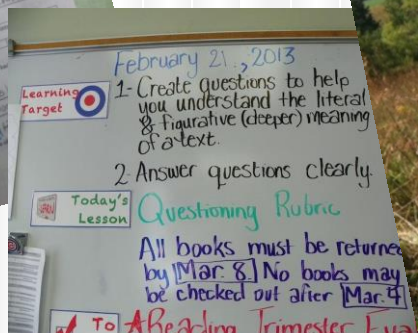 February 21., 2013
Learning Target
1- Create questions to help
you understand the literal
& figurative (deeper) meaning
of a text.
2- Answer questions clearly.
Today's Lesson
Questioning Rubric
All books must be returned
by Mar. 8. No books may
be checked out after Mar. 4
To
Reading Trimester